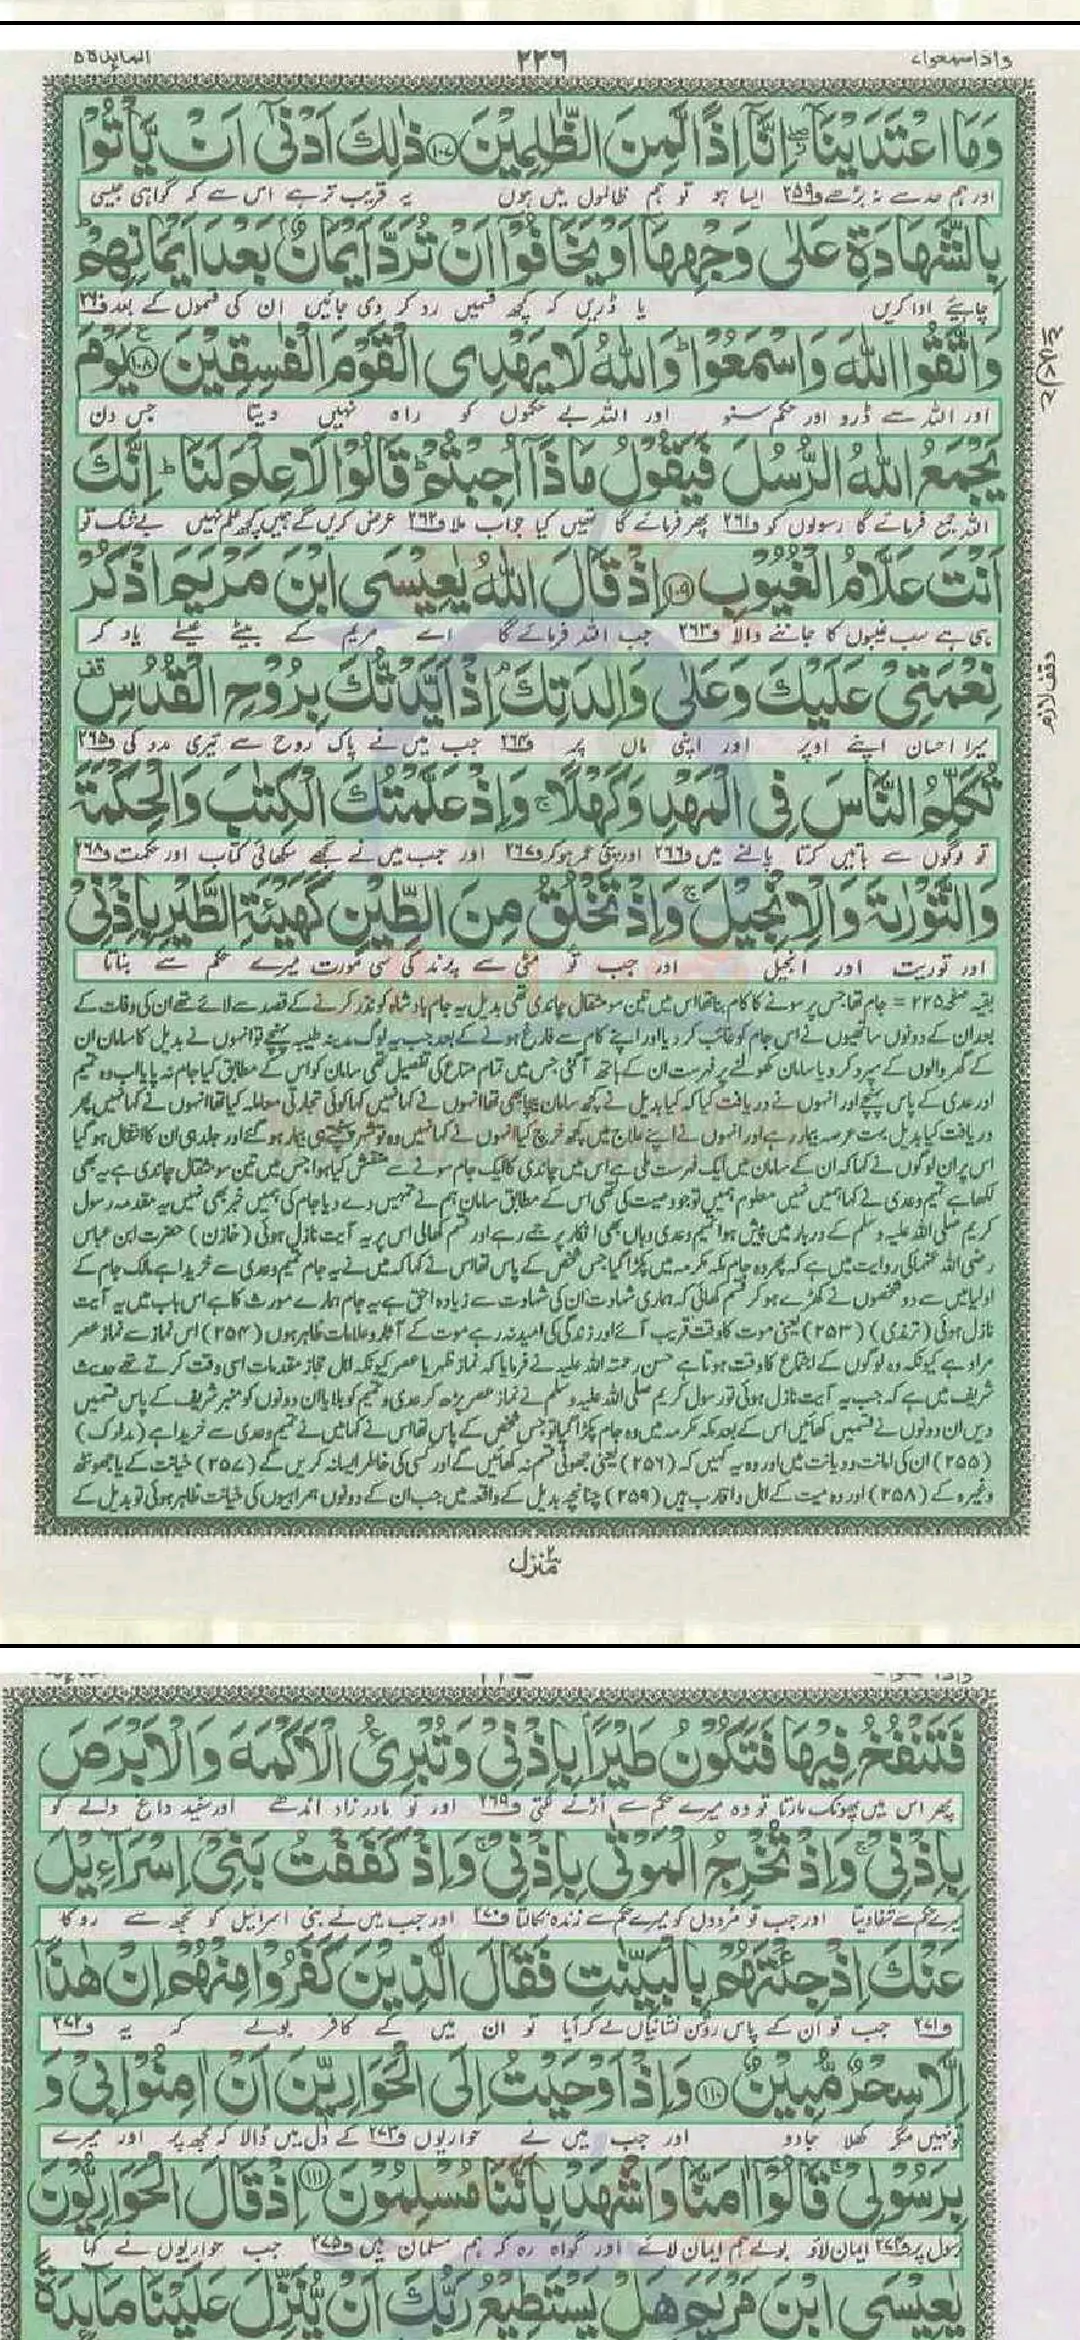 واذا سمعوا ۷ ۲۲۶ المآئدۃ ۵
وَمَا اعْتَدَيْنَآ ۖ اِنَّآ اِذًا لَّمِنَ الظّٰلِمِيْنَ ﴿۱۰۷﴾ ذٰلِكَ اَدْنٰٓى اَنْ يَّاْتُوْا
اور ہم حد سے نہ بڑھے ف۲۵۹ ایسا ہو تو ہم ظالموں میں ہوں یہ قریب تر ہے اس سے کہ گواہی جیسی
بِالشَّهَادَةِ عَلٰى وَجْهِهَآ اَوْ يَخَافُوْٓا اَنْ تُرَدَّ اَيْمَانٌۢ بَعْدَ اَيْمَانِهِمْ ؕ
چاہیئے ادا کریں یا ڈریں کہ کچھ قسمیں رد کر دی جائیں ان کی قسموں کے بعد ف۲۶۰
وَاتَّقُوا اللّٰهَ وَاسْمَعُوْا ؕ وَاللّٰهُ لَا يَهْدِى الْقَوْمَ الْفٰسِقِيْنَ ﴿۱۰۸﴾ يَوْمَ
اور اللہ سے ڈرو اور حکم سنو اور اللہ بے حکموں کو راہ نہیں دیتا جس دن
يَجْمَعُ اللّٰهُ الرُّسُلَ فَيَقُوْلُ مَاذَآ اُجِبْتُمْ ؕ قَالُوْا لَا عِلْمَ لَنَا ؕ اِنَّكَ
اللہ جمع فرمائے گا رسولوں کو ف۲۶۱ پھر فرمائے گا تمہیں کیا جواب ملا ف۲۶۲ عرض کریں گے ہمیں کچھ علم نہیں بے شک تو
اَنْتَ عَلَّامُ الْغُيُوْبِ ﴿۱۰۹﴾ اِذْ قَالَ اللّٰهُ يٰعِيْسَى ابْنَ مَرْيَمَ اذْكُرْ
ہی ہے سب غیبوں کا جاننے والا ف۲۶۳ جب اللہ فرمائے گا اے مریم کے بیٹے عیسٰے یاد کر
نِعْمَتِىْ عَلَيْكَ وَعَلٰى وَالِدَتِكَ ۘ اِذْ اَيَّدْتُّكَ بِرُوْحِ الْقُدُسِ قف
میرا احسان اپنے اوپر اور اپنی ماں پر ف۲۶۴ جب میں نے پاک روح سے تیری مدد کی ف۲۶۵
وقف لازم
تُكَلِّمُ النَّاسَ فِى الْمَهْدِ وَكَهْلًا ۚ وَاِذْ عَلَّمْتُكَ الْكِتٰبَ وَالْحِكْمَةَ
تو لوگوں سے باتیں کرتا پالنے میں ف۲۶۶ اور پکی عمر ہو کر ف۲۶۷ اور جب میں نے تجھے سکھائی کتاب اور حکمت ف۲۶۸
وَالتَّوْرٰىةَ وَالْاِنْجِيْلَ ۚ وَاِذْ تَخْلُقُ مِنَ الطِّيْنِ كَهَيْئَةِ الطَّيْرِ بِاِذْنِىْ
اور توریت اور انجیل اور جب تو مٹی سے پرند کی سی مورت میرے حکم سے بناتا
بقیہ صفحہ ۲۲۵ = جام تھا جس پر سونے کا کام بنا تھا اس میں تین سو مثقال چاندی تھی بدیل یہ جام بادشاہ کو نذر کرنے کے قصد سے لائے تھے ان کی وفات کے
بعد ان کے دونوں ساتھیوں نے اس جام کو غائب کر دیا اور اپنے کام سے فارغ ہونے کے بعد جب یہ لوگ مدینہ طیبہ پہنچے تو انہوں نے بدیل کا سامان ان
کے گھر والوں کے سپرد کر دیا سامان کھولنے پر فہرست ان کے ہاتھ آ گئی جس میں تمام متاع کی تفصیل تھی سامان کو اس کے مطابق کیا جام نہ پایا اب وہ تمیم
اور عدی کے پاس پہنچے اور انہوں نے دریافت کیا کہ کیا بدیل نے کچھ سامان بیچا بھی تھا انہوں نے کہا نہیں کہا کوئی تجارتی معاملہ کیا تھا انہوں نے کہا نہیں پھر
دریافت کیا بدیل بہت عرصہ بیمار رہے اور انہوں نے اپنے علاج میں کچھ خرچ کیا انہوں نے کہا نہیں وہ تو شہر پہنچتے ہی بیمار ہو گئے اور جلد ہی ان کا انتقال ہو گیا
اس پر ان لوگوں نے کہا کہ ان کے سامان میں ایک فہرست ملی ہے اس میں چاندی کا ایک جام سونے سے منقش کیا ہوا جس میں تین سو مثقال چاندی ہے یہ بھی
لکھا ہے تمیم و عدی نے کہا ہمیں نہیں معلوم ہمیں تو جو وصیت کی تھی اس کے مطابق سامان ہم نے تمہیں دے دیا جام کی ہمیں خبر بھی نہیں یہ مقدمہ رسول
کریم صلی اللہ علیہ وسلم کے دربار میں پیش ہوا تمیم و عدی وہاں بھی انکار پر جمے رہے اور قسم کھالی اس پر یہ آیت نازل ہوئی (خازن) حضرت ابن عباس
رضی اللہ عنہما کی روایت میں ہے کہ پھر وہ جام مکہ مکرمہ میں پکڑا گیا جس شخص کے پاس تھا اس نے کہا کہ میں نے یہ جام تمیم و عدی سے خریدا ہے مالک جام کے
اولیا میں سے دو شخصوں نے کھڑے ہو کر قسم کھائی کہ ہماری شہادت ان کی شہادت سے زیادہ احق ہے یہ جام ہمارے مورث کا ہے اس باب میں یہ آیت
نازل ہوئی (ترمذی) (۲۵۳) یعنی موت کا وقت قریب آئے اور زندگی کی امید نہ رہے موت کے آثار و علامات ظاہر ہوں (۲۵۴) اس نماز سے نماز عصر
مراد ہے کیونکہ وہ لوگوں کے اجتماع کا وقت ہوتا ہے حسن رحمتہ اللہ علیہ نے فرمایا کہ نماز ظہر یا عصر کیونکہ اہل حجاز مقدمات اسی وقت کرتے تھے حدیث
شریف میں ہے کہ جب یہ آیت نازل ہوئی تو رسول کریم صلی اللہ علیہ وسلم نے نماز عصر پڑھ کر عدی و تمیم کو بلایا ان دونوں کو منبر شریف کے پاس قسمیں
دیں ان دونوں نے قسمیں کھائیں اس کے بعد مکہ مکرمہ میں وہ جام پکڑا گیا تو جس شخص کے پاس تھا اس نے کہا میں نے تمیم و عدی سے خریدا ہے (مدارک)
(۲۵۵) ان کی امانت و دیانت میں اور وہ یہ کہیں کہ (۲۵۶) یعنی جھوٹی قسم نہ کھائیں گے اور کسی کی خاطر ایسا نہ کریں گے (۲۵۷) خیانت کے یا جھوٹ
وغیرہ کے (۲۵۸) اور وہ میت کے اہل و اقارب ہیں (۲۵۹) چنانچہ بدیل کے واقعہ میں جب ان کے دونوں ہمراہیوں کی خیانت ظاہر ہوئی تو بدیل کے
منزل ۲
فَتَنْفُخُ فِيْهَا فَتَكُوْنُ طَيْرًۢا بِاِذْنِىْ وَتُبْرِئُ الْاَكْمَهَ وَالْاَبْرَصَ
پھر اس میں پھونک مارتا تو وہ میرے حکم سے اڑنے لگتی ف۲۶۹ اور تو مادر زاد اندھے اور سفید داغ والے کو
بِاِذْنِىْ ۚ وَاِذْ تُخْرِجُ الْمَوْتٰى بِاِذْنِىْ ۚ وَاِذْ كَفَفْتُ بَنِىْٓ اِسْرَآءِيْلَ
میرے حکم سے شفا دیتا اور جب تو مُردوں کو میرے حکم سے زندہ نکالتا ف۲۷۰ اور جب میں نے بنی اسرائیل کو تجھ سے روکا
عَنْكَ اِذْ جِئْتَهُمْ بِالْبَيِّنٰتِ فَقَالَ الَّذِيْنَ كَفَرُوْا مِنْهُمْ اِنْ هٰذَآ
ف۲۷۱ جب تو ان کے پاس روشن نشانیاں لے کر آیا تو ان میں کے کافر بولے کہ یہ ف۲۷۲
اِلَّا سِحْرٌ مُّبِيْنٌ ﴿۱۱۰﴾ وَاِذْ اَوْحَيْتُ اِلَى الْحَوَارِيّٖنَ اَنْ اٰمِنُوْا بِىْ وَ
تو نہیں مگر کھلا جادو اور جب میں نے حواریوں ف۲۷۳ کے دل میں ڈالا کہ مجھ پر اور میرے
بِرَسُوْلِىْ ۚ قَالُوْٓا اٰمَنَّا وَاشْهَدْ بِاَنَّنَا مُسْلِمُوْنَ ﴿۱۱۱﴾ اِذْ قَالَ الْحَوَارِيُّوْنَ
رسول پر ف۲۷۴ ایمان لاؤ بولے ہم ایمان لائے اور گواہ رہ کہ ہم مسلمان ہیں ف۲۷۵ جب حواریوں نے کہا
يٰعِيْسَى ابْنَ مَرْيَمَ هَلْ يَسْتَطِيْعُ رَبُّكَ اَنْ يُّنَزِّلَ عَلَيْنَا مَآئِدَةً